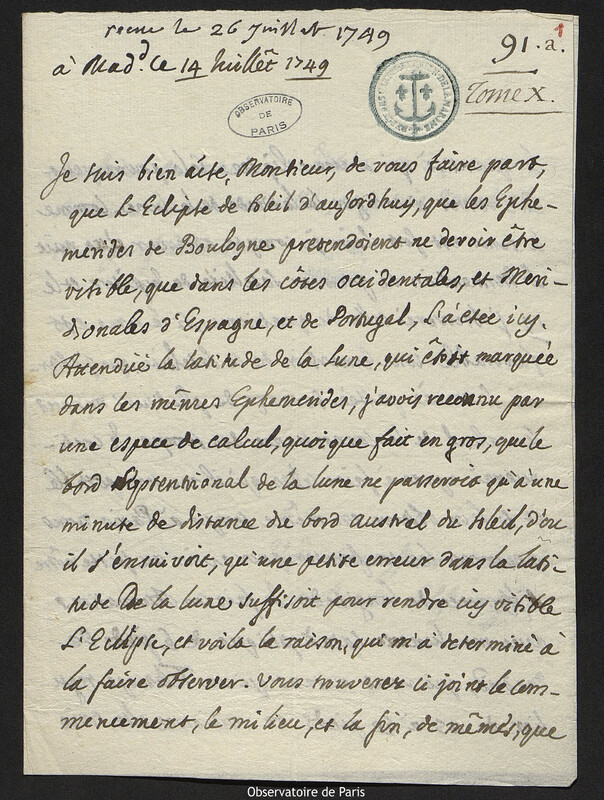 recue le 26 Juillet 1749
à Madd. ce 14 Juillêt 1749
91.a.
1
Tome X.
OBSERVATOIRE
DE
PARIS
Je suis bien aise, Monsieur, de vous faire part,
que L'Eclipse de soleil d'aujordhuy, que les Ephe-
merides de Boulogne pretendoient ne devoir être
visible, que dans les côtes occidentales, et Meri-
dionales d'Espagne, et de Portugal, L'a étée icy.
Attenduë la latitude de la lune, qui êtoit marquée
dans les mêmes Ephemerides, j'avois reconnu par
une espece de calcul, quoique fait en gros, que le
bord Septentrional de la lune ne passeroit qu'à une
minute de distance du bord austral du soleil, d'ou
il s'ensuivoit, qu'une petite erreur dans la lati-
tude De la lune suffisoit pour rendre icy visible
L'Eclipse, et voila la raison, qui m'a determiné à
la faire observer. Vous trouverez ci joint le com-
mencement, le milieu, et la fin, de mêmes, que
Observatoire de Paris